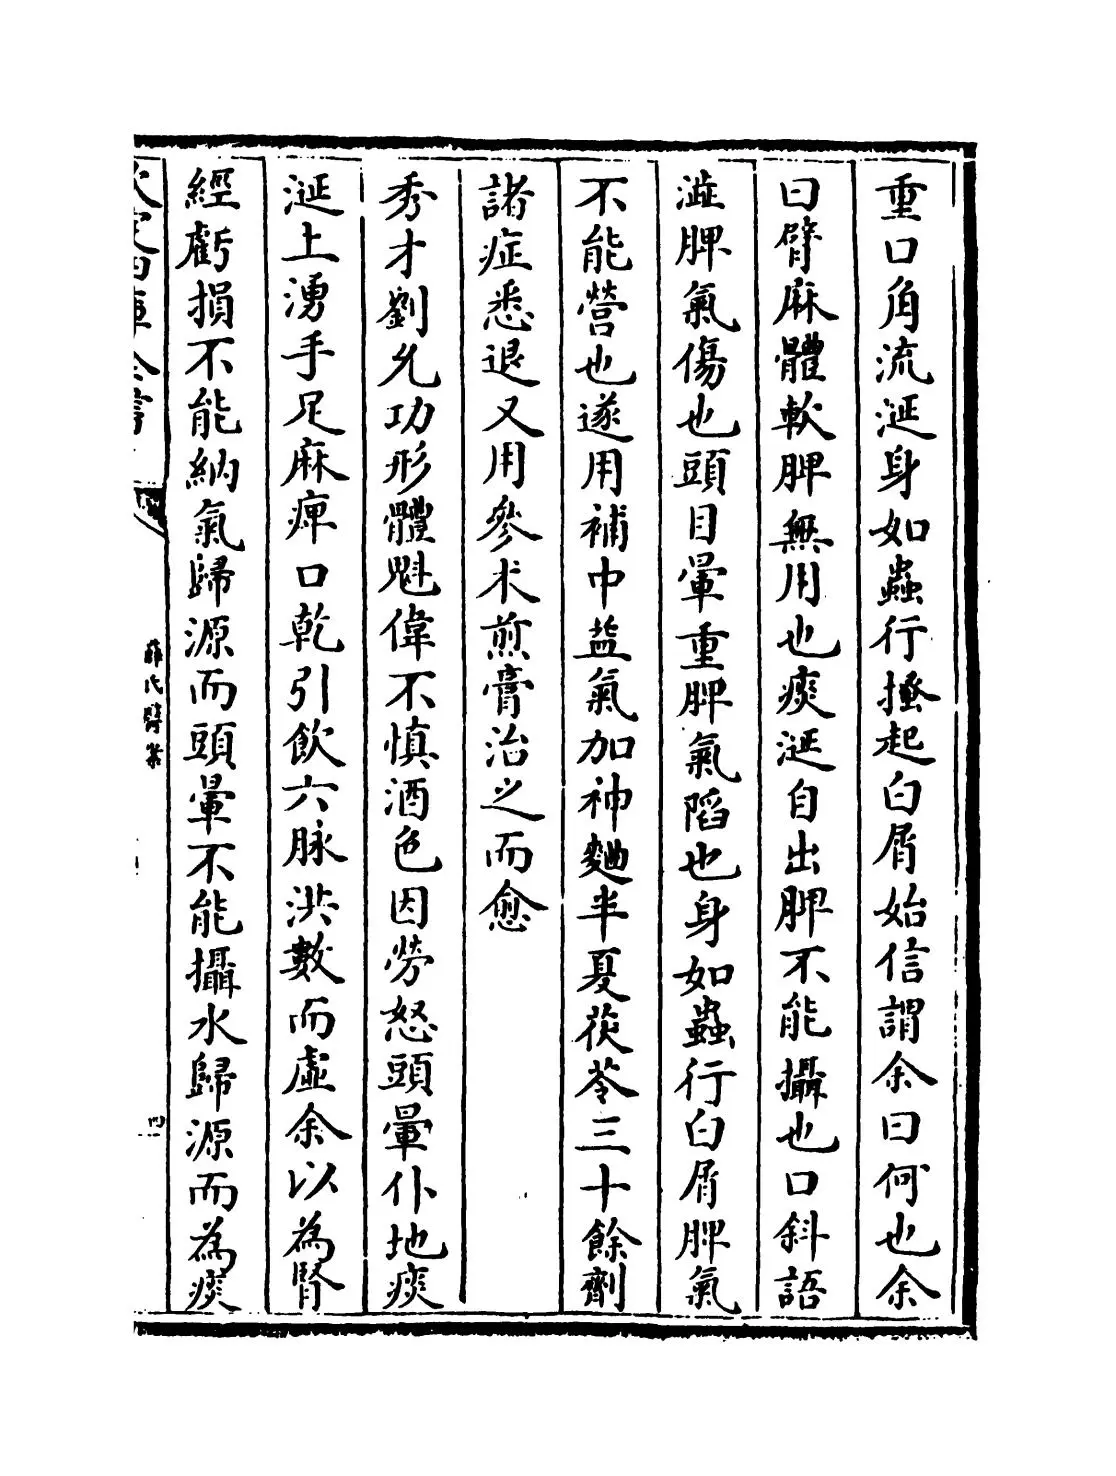 重口角流涎身如蟲行搔起白屑始信謂余曰何也余
曰臂麻體軟脾無用也痰涎自出脾不能攝也口斜語
澁脾氣傷也頭目暈重脾氣陷也身如蟲行白屑脾氣
不能營也遂用補中益氣加神麯半夏茯苓三十餘劑
諸症悉退又用參术煎膏治之而愈
秀才劉允功形體魁偉不慎酒色因勞怒頭暈仆地痰
涎上湧手足麻痺口乾引飲六脉洪數而虛余以為腎
經虧損不能納氣歸源而頭暈不能攝水歸源而為痰
欽定四庫全書
薛氏醫案
四